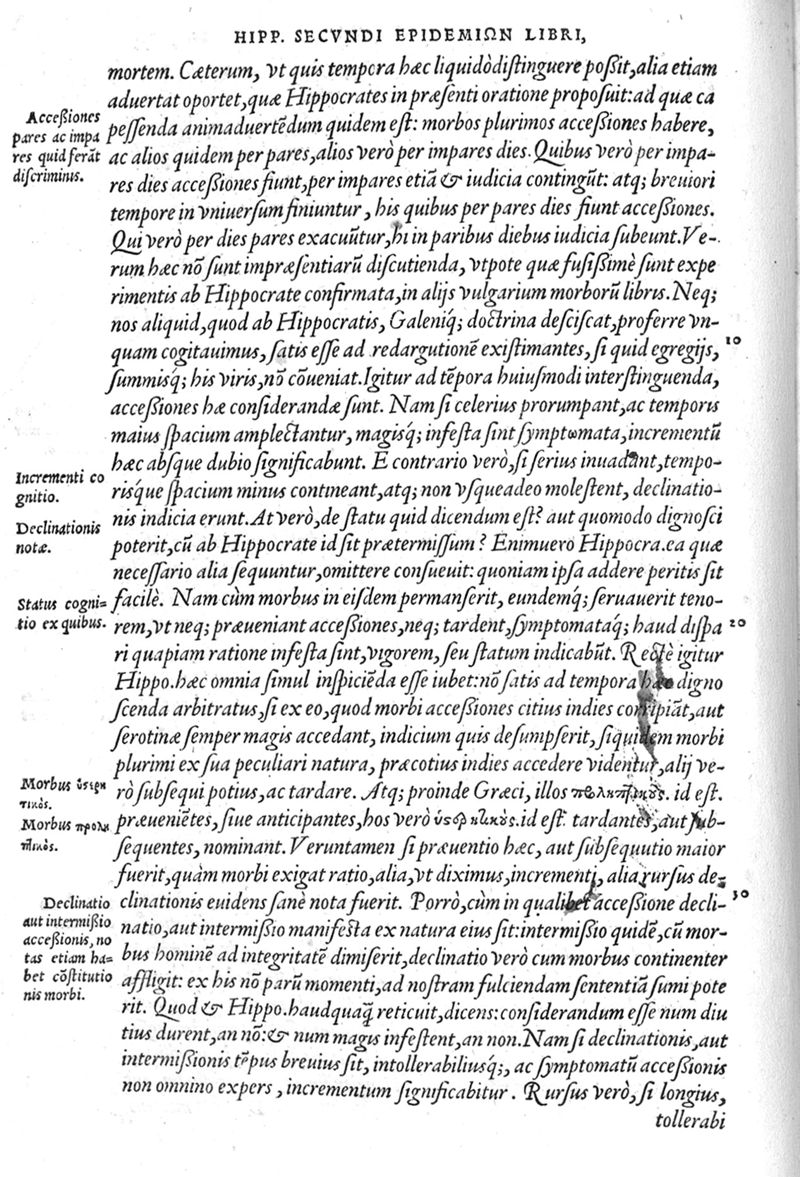 HIPP. SECVNDI EPIDEMIΩN LIBRI,
mortem. Cæterum, vt quis tempora hæc liquidò distinguere possit, alia etiam
aduertat oportet, quæ Hippocrates in præsenti oratione proposuit: ad quæ ca
pessenda animaduertēdum quidem est: morbos plurimos accessiones habere,
ac alios quidem per pares, alios verò per impares dies. Quibus verò per impa-
res dies accessiones fiunt, per impares etiā & iudicia contingūt: atq; breuiori
tempore in vniuersum finiuntur, his quibus per pares dies fiunt accessiones.
Qui verò per dies pares exacuūtur, hi in paribus diebus iudicia subeunt. Ve-
rum hæc nō sunt impræsentiarū discutienda, vtpote quæ fusissimè sunt expe
rimentis ab Hippocrate confirmata, in alijs vulgarium morborū libris. Neq;
nos aliquid, quod ab Hippocratis, Galeniq́; doctrina desciscat, proferre vn-
quam cogitauimus, satis esse ad redargutionē existimantes, si quid egregijs, 10
summisq́; his viris, nō cōueniat. Igitur ad tēpora huiusmodi interstinguenda,
accessiones hæ considerandæ sunt. Nam si celerius prorumpant, ac temporis
maius spacium amplectantur, magisq́; infesta sint symptωmata, incrementū
hæc absque dubio significabunt. E contrario verò, si serius inuadant, tempo-
risq́ue spacium minus contineant, atq; non vsqueadeo molestent, declinatio-
nis indicia erunt. At verò, de statu quid dicendum est? aut quomodo dignosci
poterit, cū ab Hippocrate id sit prætermissum? Enimuero Hippocra. ea quæ
necessario alia sequuntur, omittere consueuit: quoniam ipsa addere peritis sit
facilè. Nam cùm morbus in eisdem permanserit, eundemq́; seruauerit teno-
rem, vt neq; præueniant accessiones, neq; tardent, symptomataq́; haud dispa 20
ri quapiam ratione infesta sint, vigorem, seu statum indicabūt. Rectè igitur
Hippo. hæc omnia simul inspiciēda esse iubet: nō satis ad tempora hæc digno
scenda arbitratus, si ex eo, quod morbi accessiones citius indies corripiāt, aut
serotinæ semper magis accedant, indicium quis desumpserit, siquidem morbi
plurimi ex sua peculiari natura, præcotius indies accedere videntur, alij ve-
rò subsequi potius, ac tardare. Atq; proinde Græci, illos προληπτικοὺς. id est.
præueniētes, siue anticipantes, hos verò ὑστερητικοὺς. id est. tardantes, aut sub-
sequentes, nominant. Veruntamen si præuentio hæc, aut subsequutio maior
fuerit, quàm morbi exigat ratio, alia, vt diximus, incrementi, alia rursus de-
clinationis euidens sanè nota fuerit. Porrò, cùm in qualibet accessione decli- 30
natio, aut intermissio manifesta ex natura eius sit: intermissio quidē, cū mor-
bus hominē ad integritatē dimiserit, declinatio verò cum morbus continenter
affligit: ex his nō parū momenti, ad nostram fulciendam sententiā sumi pote
rit. Quod & Hippo. haudquaq̄ reticuit, dicens: considerandum esse num diu
tius durent, an nō: & num magis infestent, an non. Nam si declinationis, aut
intermissionis tēpus breuius sit, intollerabiliusq́;, ac symptomatū accessionis
non omnino expers, incrementum significabitur. Rursus verò, si longius,
tollerabi
Accessiones
pares ac impa
res quid ferāt
discriminis.
Incrementi co
gnitio.
Declinationis
notæ.
Status cogni=
tio ex quibus.
Morbus ὑστερη
τικὸς.
Morbus προλη
πτικὸς.
Declinatio
aut intermissio
accessionis, no
tas etiam ha=
bet cōstitutio
nis morbi.